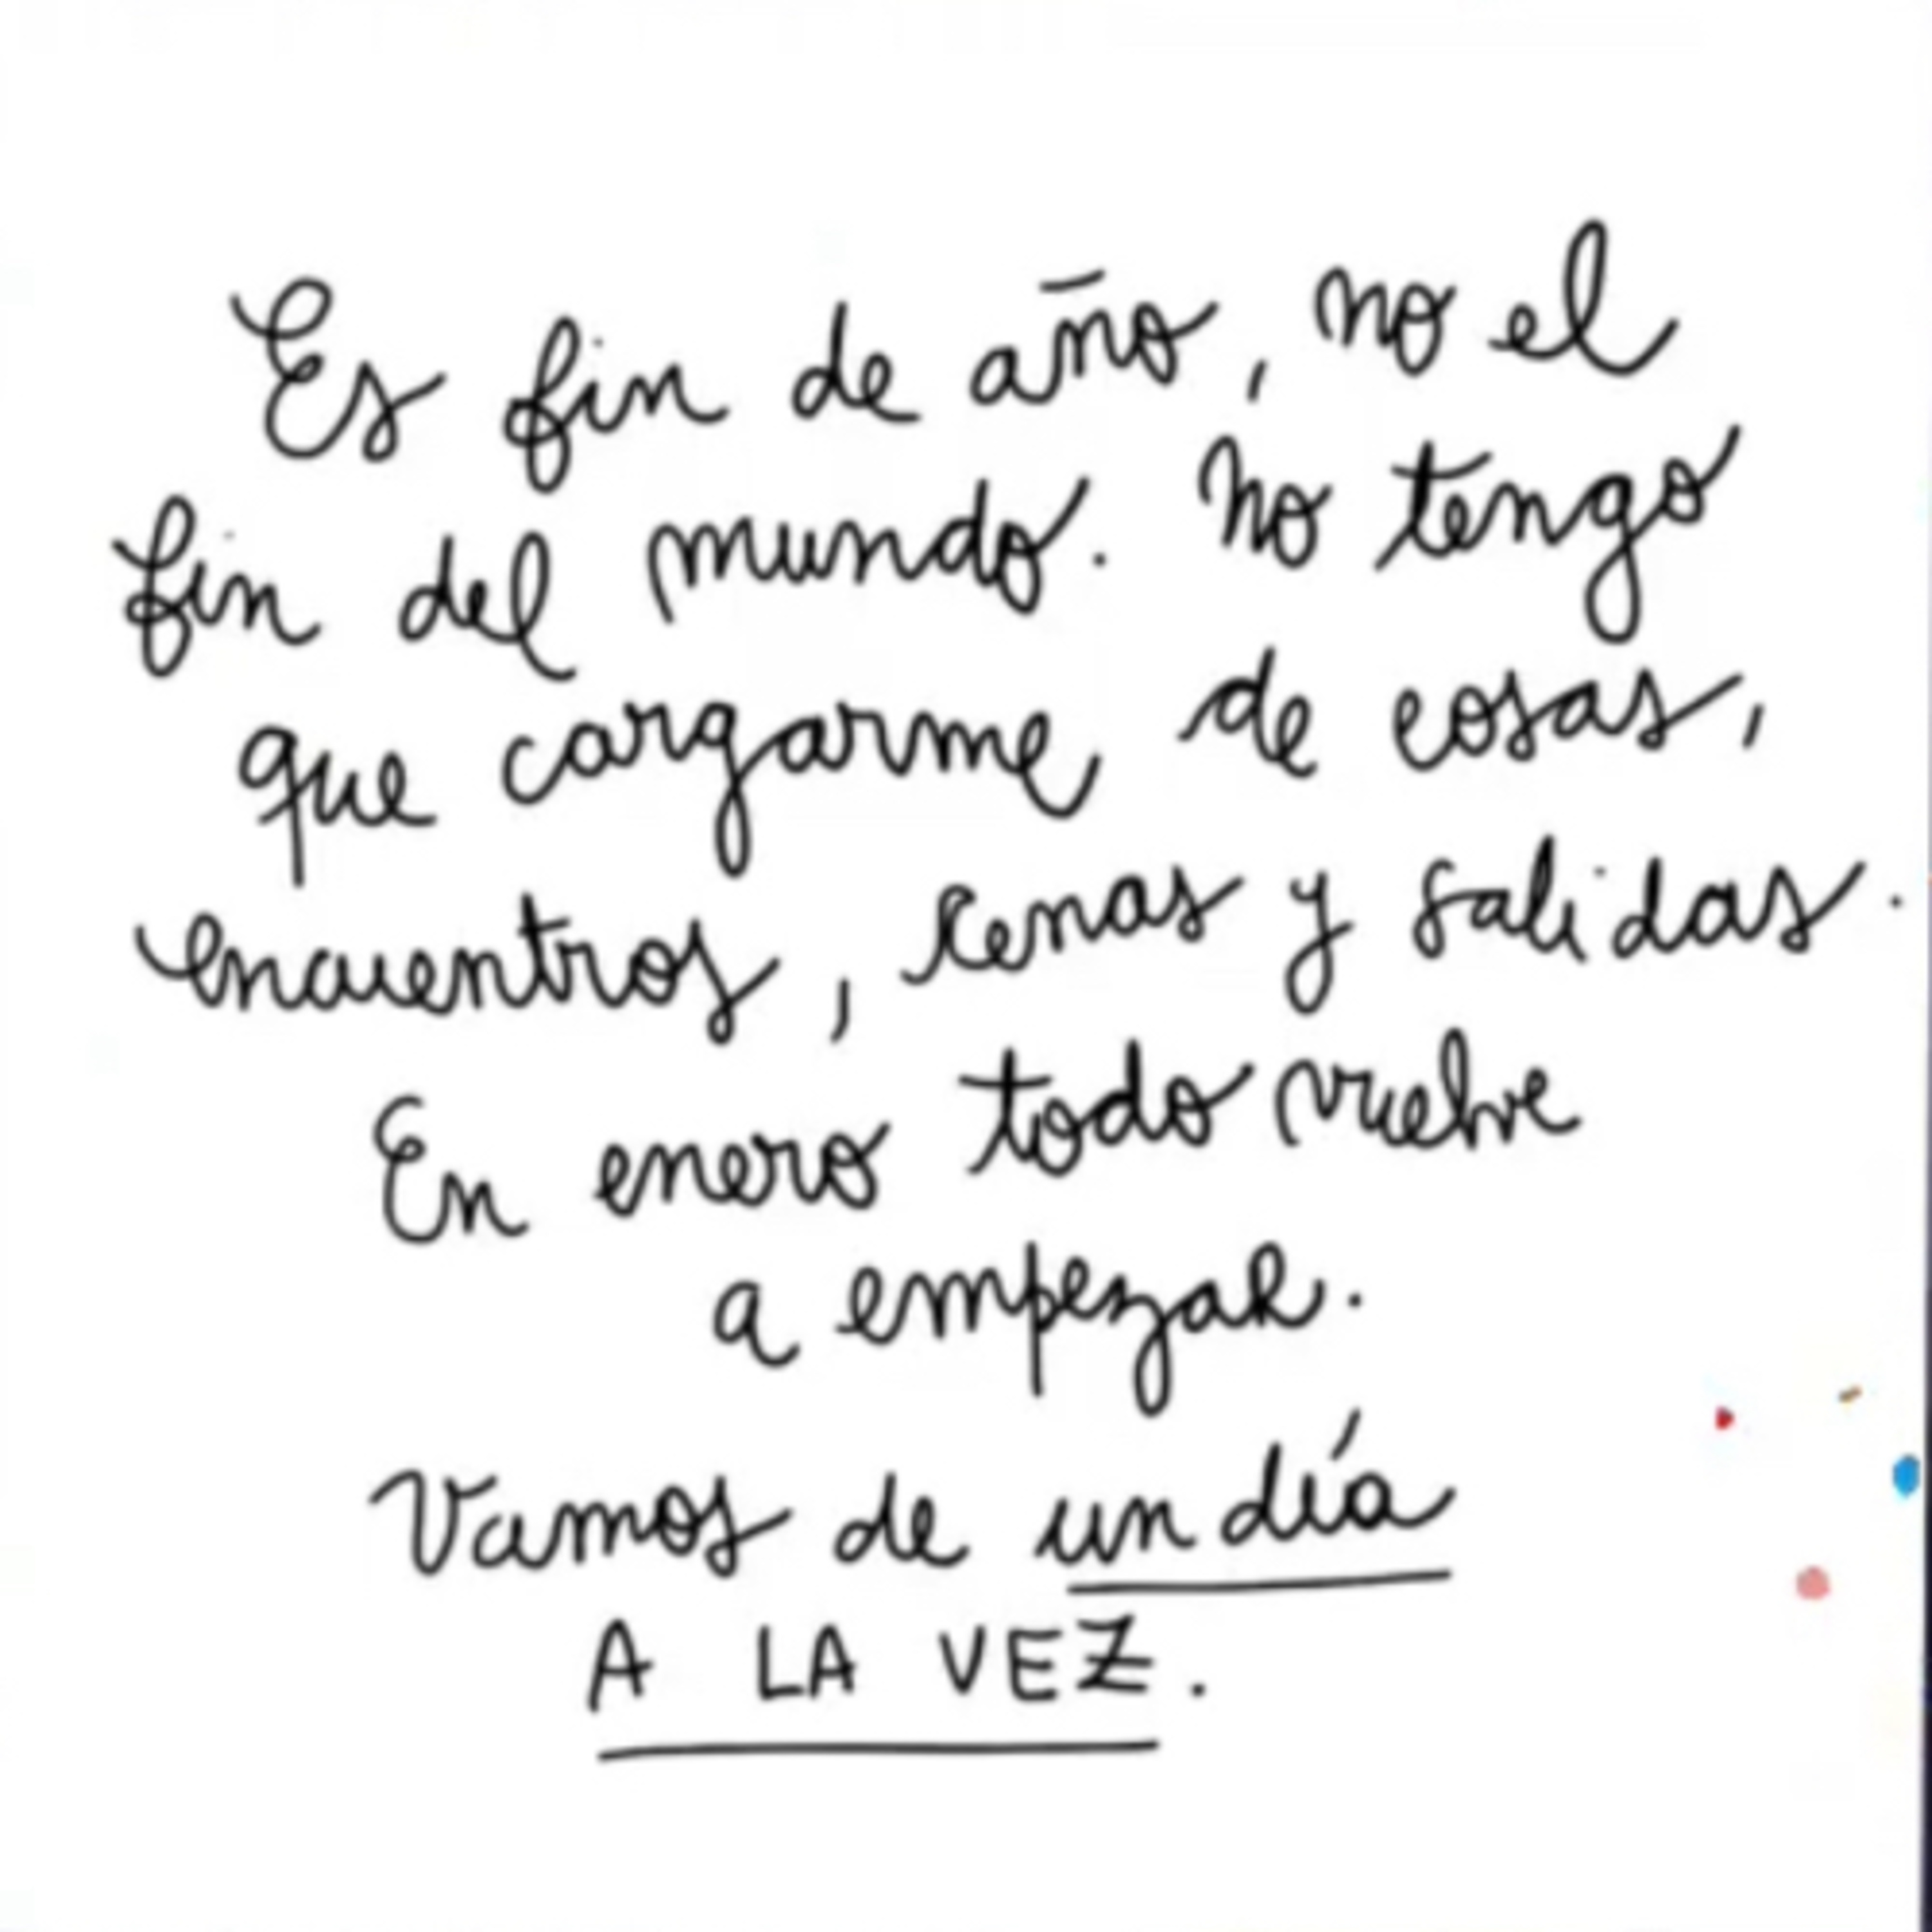 Es fin de año, no el
fin del mundo. No tengo
que cargarme de cosas,
encuentros, cenas y salidas.
En enero todo vuelve
a empezar.
Vamos de un día
A LA VEZ.